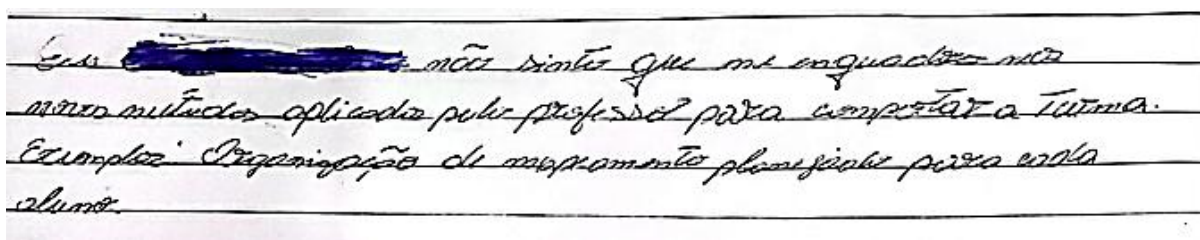 Eu não sinto que me enquadro nos
novos metodos aplicados pelo professor para comportar a Turma.
Exemplos: Organização de mapeamento planejado para cada
aluno.